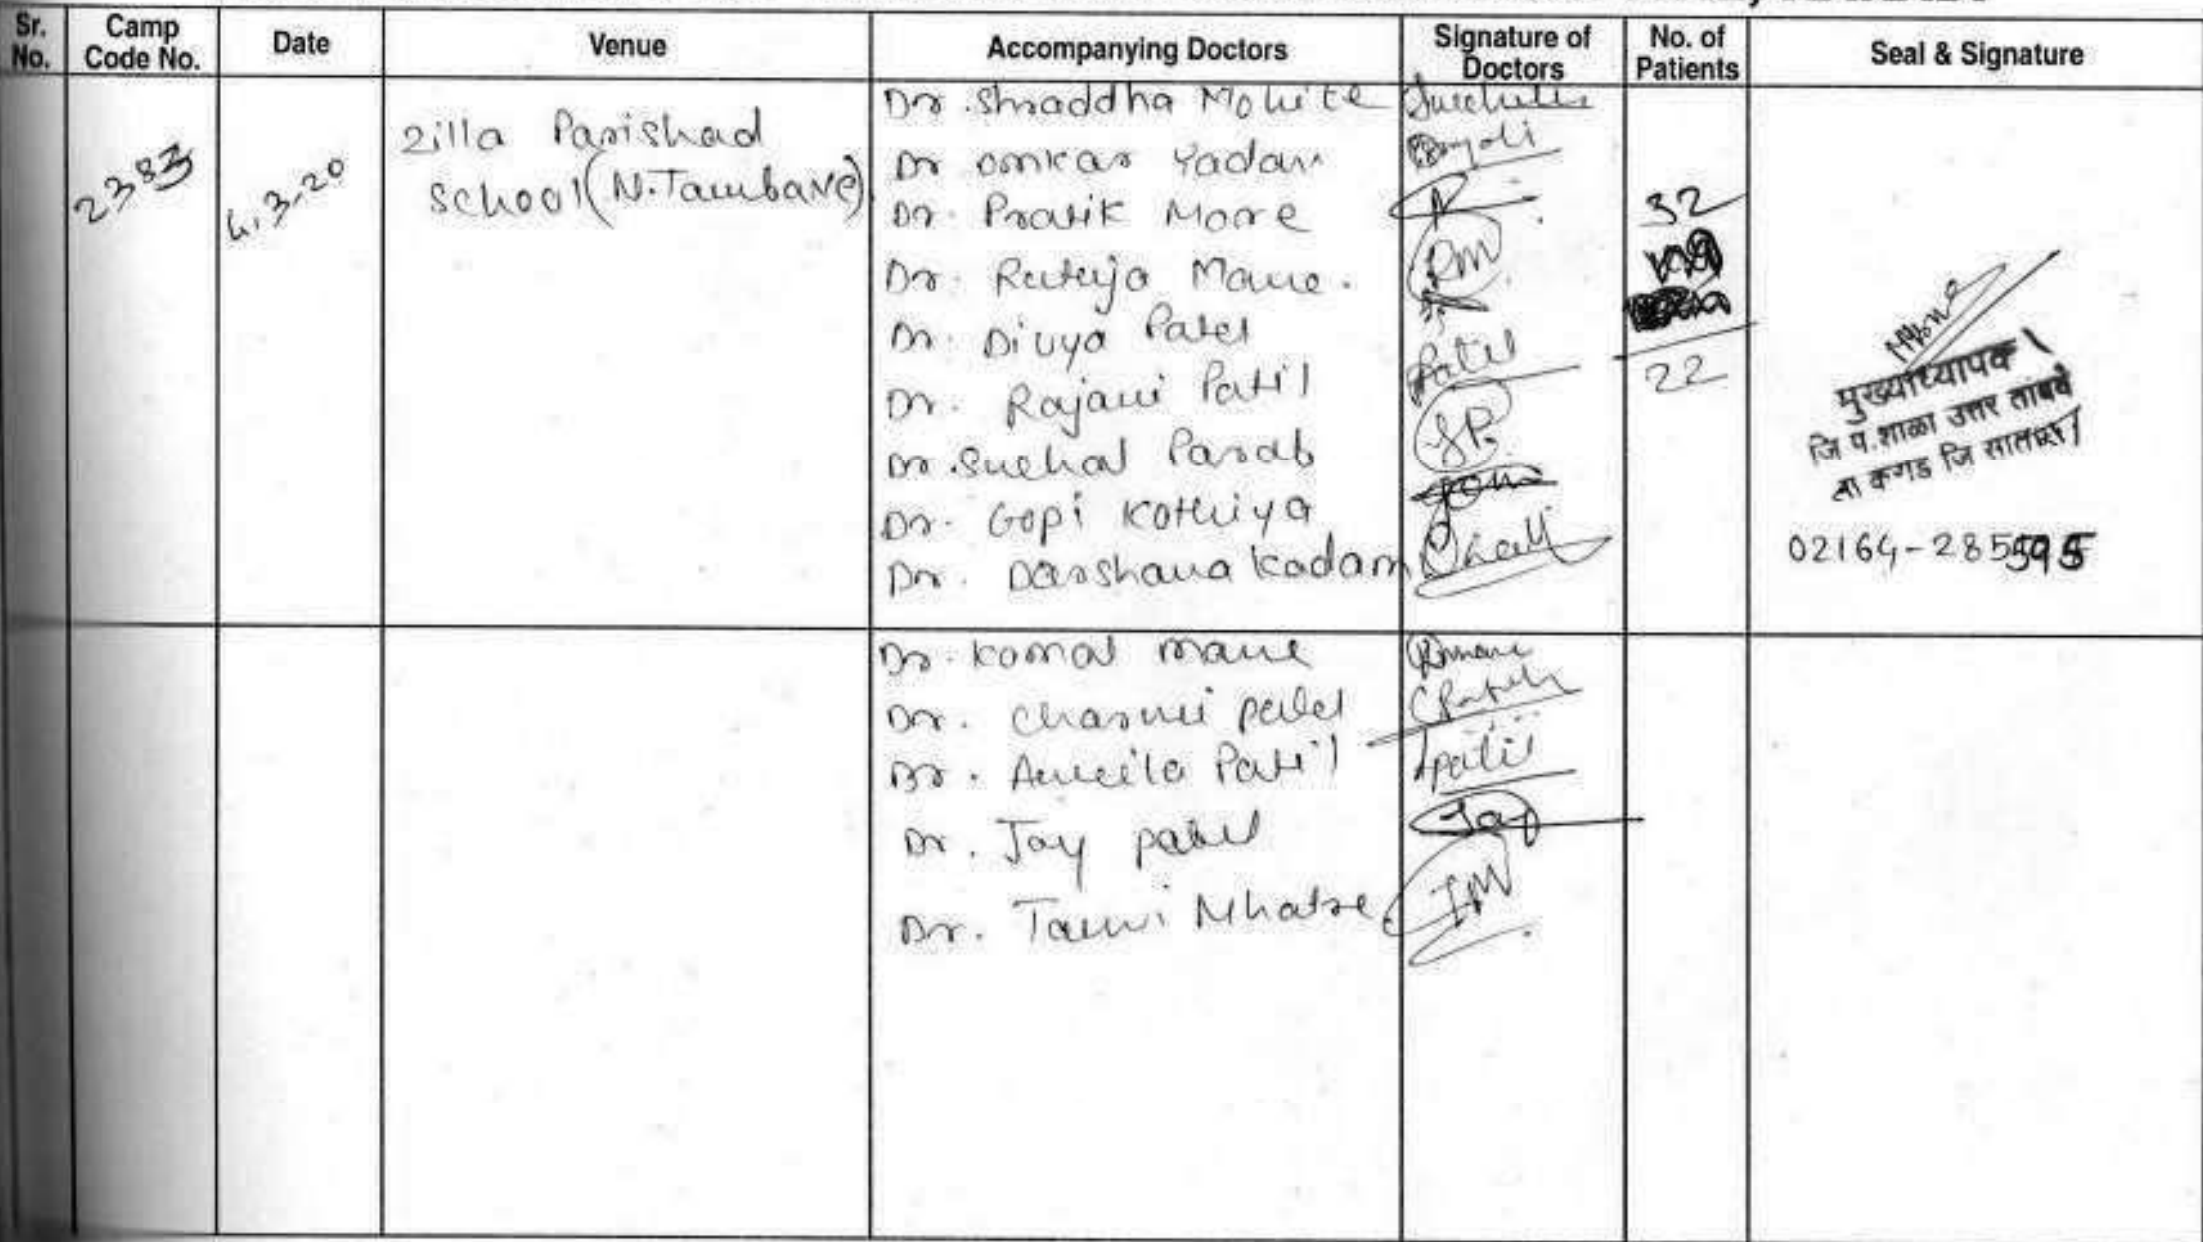 Sr. No.
Camp Code No.
Date
Venue
Accompanying Doctors
Signature of Doctors
No. of Patients
Seal & Signature
2383
4.3.20
Zilla Parishad
School (N.Tambave)
Dr. Shraddha Mohite
Dr Omkar Yadav
Dr. Pratik More
Dr. Rutuja Mane.
Dr. Divya Patel
Dr. Rajani Patil
Dr. Snehal Parab
Dr. Gopi Kothiya
Dr. Darshana Kadam
RM
Patil
SP
32
22
मुख्याध्यापक
जि प. शाळा उत्तर तांबवे
ता कराड जि सातारा
02164-285595
Dr. Komal Mane
Dr. Charmi Patel
Dr. Patil
Dr. Jay Patel
Dr. Tanvi Mhatre
Patil
Jay
TM